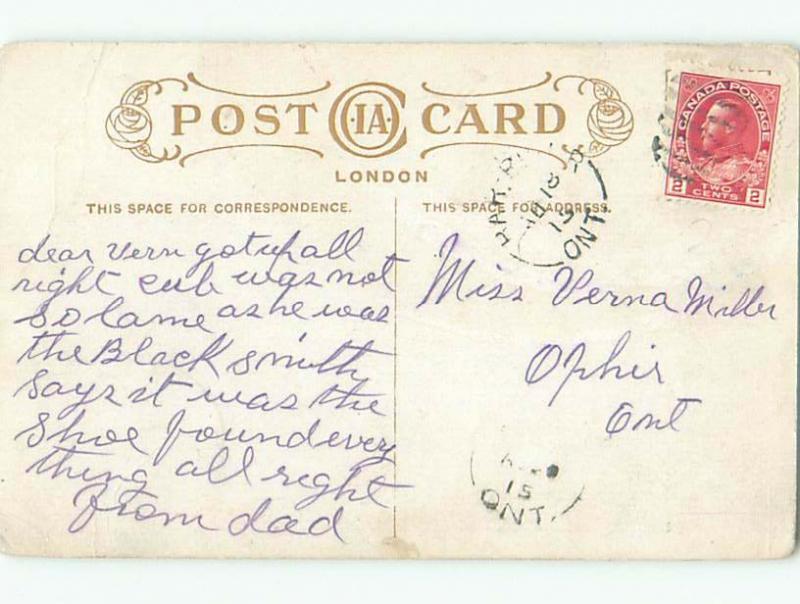 POST CIA CARD
LONDON
THIS SPACE FOR CORRESPONDENCE.
THIS SPACE FOR ADDRESS.
dear Vern got up all
right cub was not
so lame as he was
the Black smith
says it was the
shoe found every
thing all right
from dad
Miss Verna Miller
Ophir
Ont
CANADA POSTAGE
2 TWO CENTS 2
18
15
ONT
15
ONT.